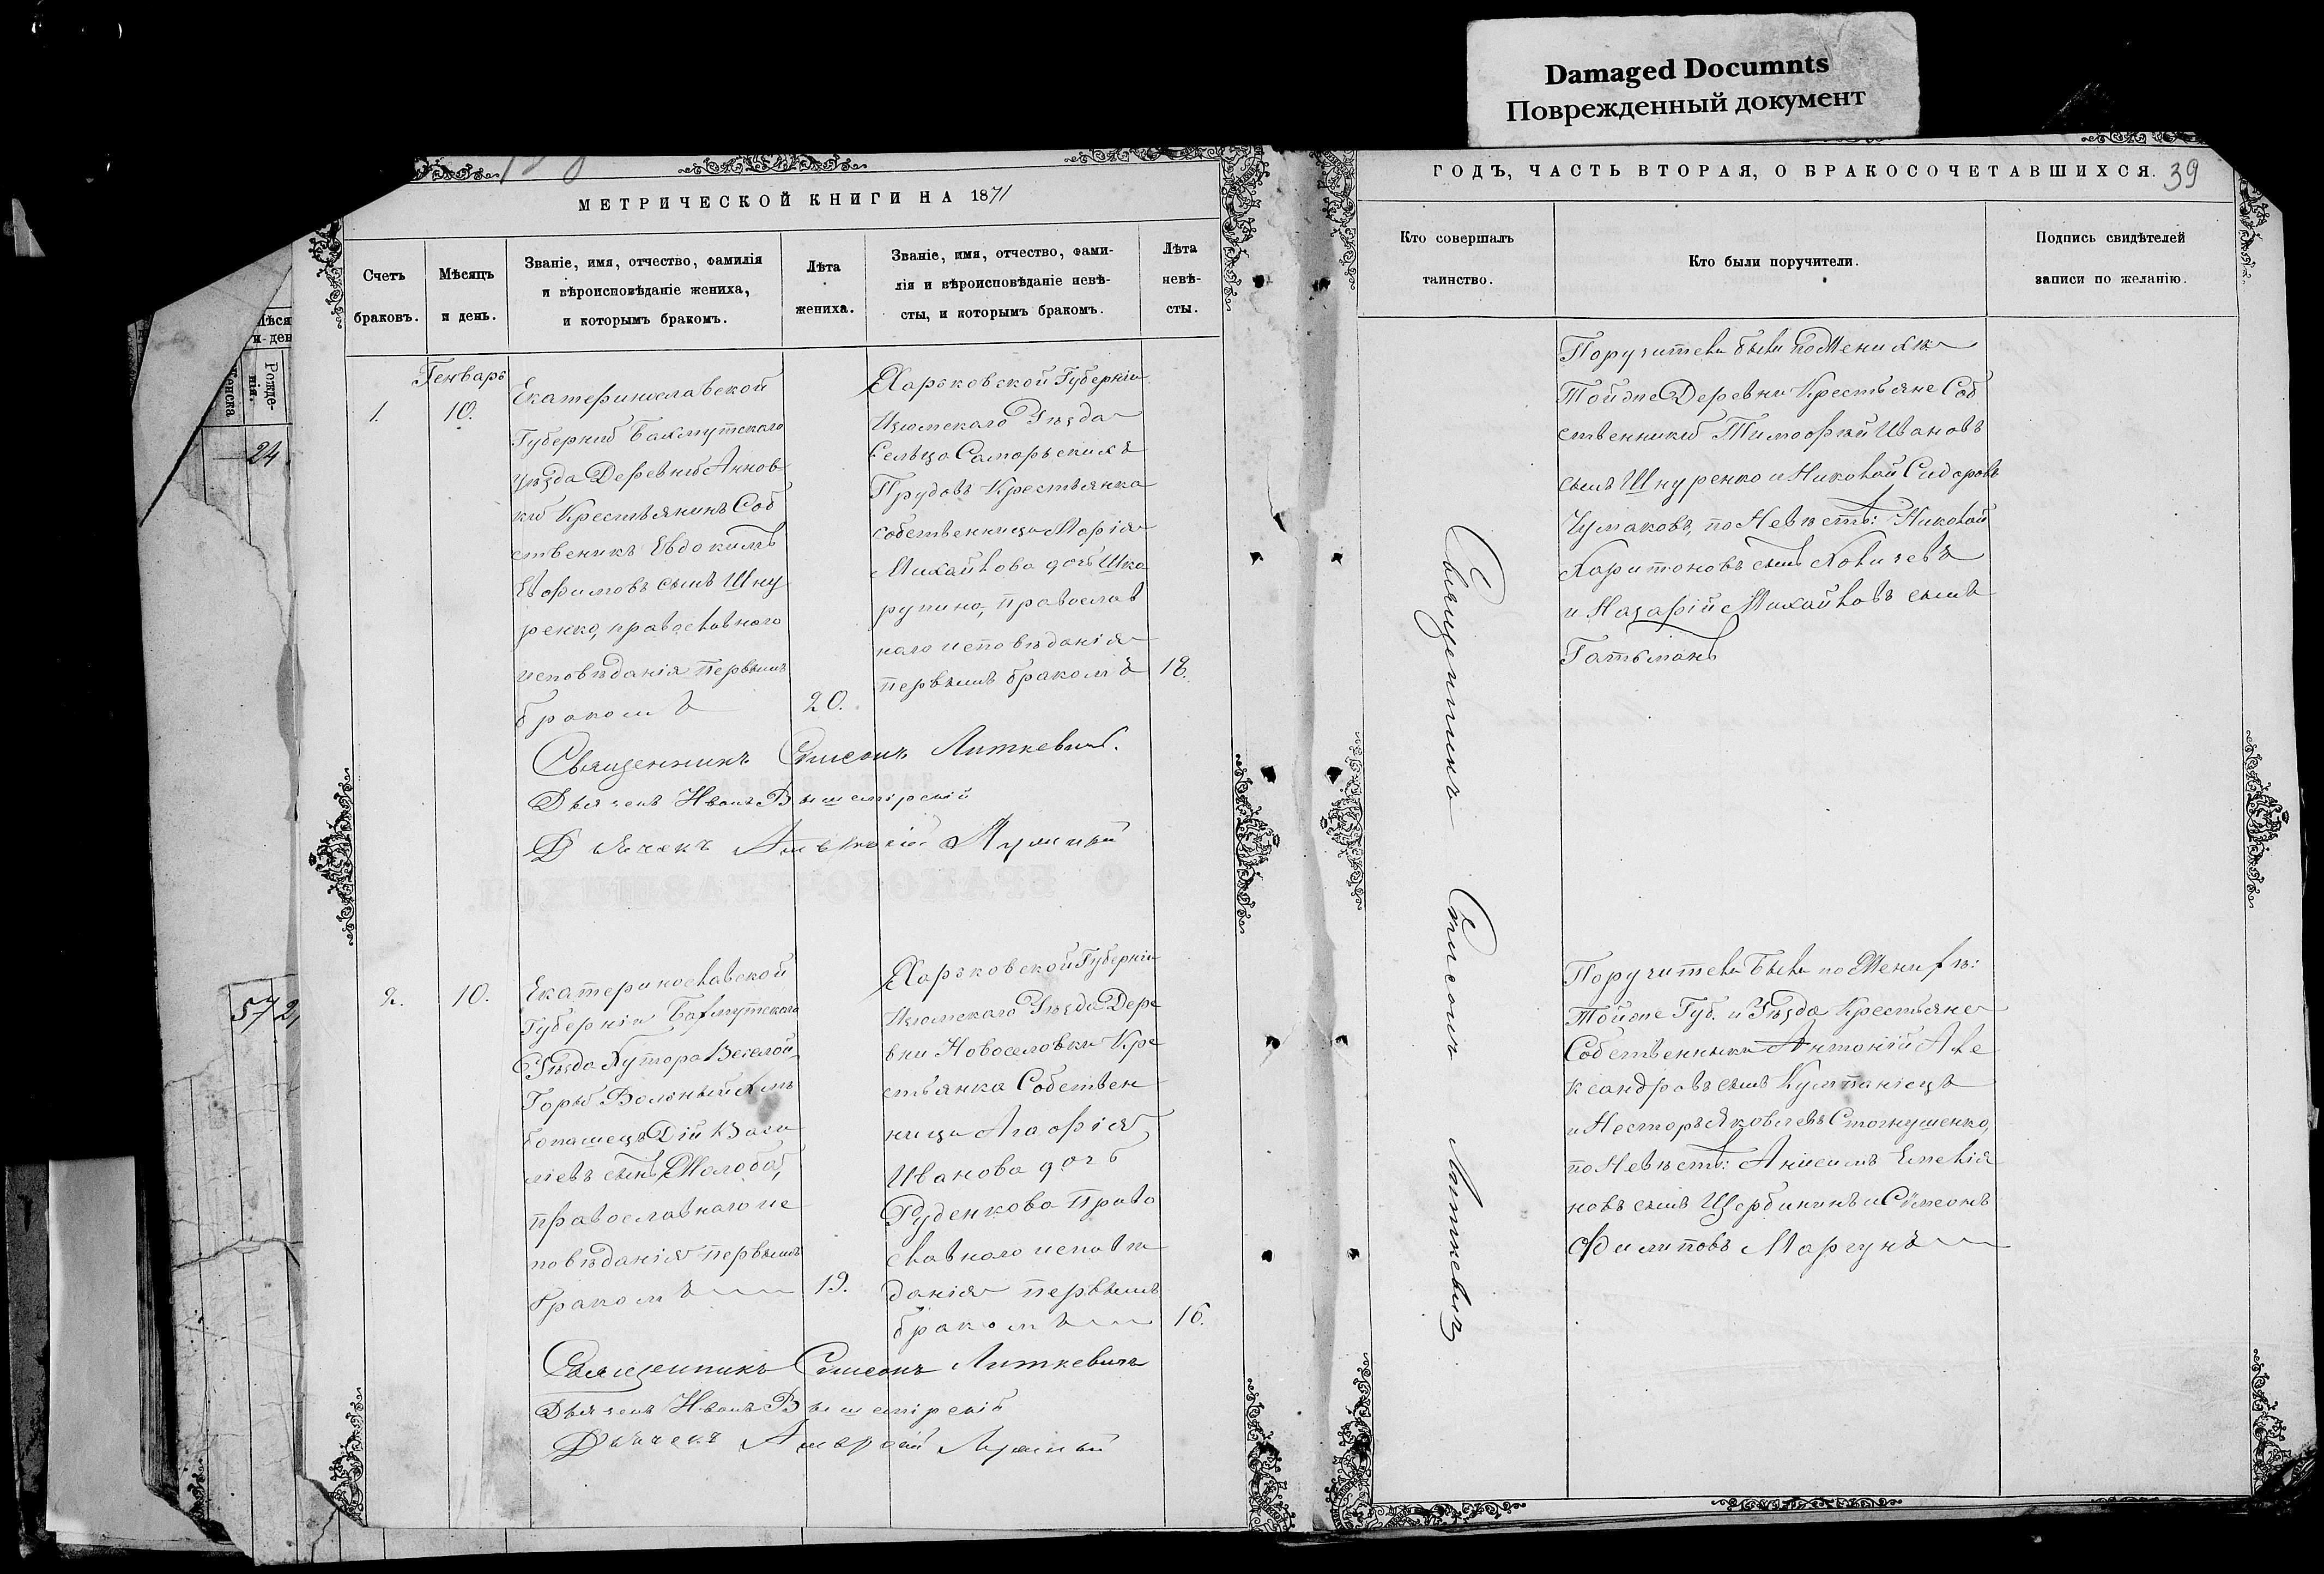 Damaged Documnts
Поврежденный документ
МЕТРИЧЕСКОЙ КНИГИ НА 1871
ГОДЪ, ЧАСТЬ ВТОРАЯ, О БРАКОСОЧЕТАВШИХСЯ.
39
Счетъ
браковъ.
Мѣсяцъ
и день.
Званіе, имя, отчество, фамилія
и вѣроисповѣданіе жениха,
и которымъ бракомъ.
Лѣта
жениха.
Званіе, имя, отчество, фами-
лія и вѣроисповѣданіе невѣ-
сты, и которымъ бракомъ.
Лѣта
невѣ-
сты.
Кто совершалъ
таинство.
Кто были поручители.
Подпись свидѣтелей
записи по желанію.
Рожде-
нія.
24
57
Генварь
1.
10.
Екатеринославской
Губерніи Бахмутскаго
уѣзда Деревни Аннов
ки Крестьянинъ Соб
ственикъ Евдокимъ
Ефимовъ сынъ Шну
ренко, православнаго
исповѣданія первымъ
бракомъ
20.
Харьковской Губерніи
Изюмскаго Уѣзда
Сельца Самарскихъ
Прудовъ Крестьянка
собственница Марія
Михайлова дочь Шка
рупина, православ
наго исповѣданія
первымъ бракомъ
18.
Священникъ Симеонъ Литкевичъ.
Дьячокъ Иванъ
Дьячекъ
Поручители были по Женихѣ
Тойже Деревни Крестьяне Соб
ственники Тимофей Ивановъ
сынъ Шнуренко и Николай Сидоровъ
Чумаковъ, по Невѣстѣ: Николай
Харитоновъ сынъ
и Назарій Михайловъ сынъ
Гатьманъ
2.
10.
Екатеринославской
Губерніи Бахмутскаго
Уѣзда Хутора Веселой
Горы Вольный Хлѣ
бопашецъ Дій Васи
ліевъ сынъ Жолоба,
православнаго ис
повѣданія первымъ
бракомъ
19.
Харьковской Губерніи
Изюмскаго Уѣзда Дере
вни Новоселовки Кре
стьянка Собствен
ница Агафія
Иванова дочь
Руденкова Право
славнаго исповѣ
данія первымъ
бракомъ
16.
Священникъ Симеонъ Литкевичъ
Дьячокъ Иванъ
Дьячекъ
Поручители были по Женихѣ:
Тойже Губ. и Уѣзда Крестьяне
Собственники Антоній Але
ксандровъ сынъ Кумпаніецъ
и Несторъ Яковлевъ
по Невѣстѣ: Анисимъ Емелія
новъ сынъ Щербининъ и Симеонъ
Филиповъ Маргунъ
Священникъ Симеонъ Литкевичъ